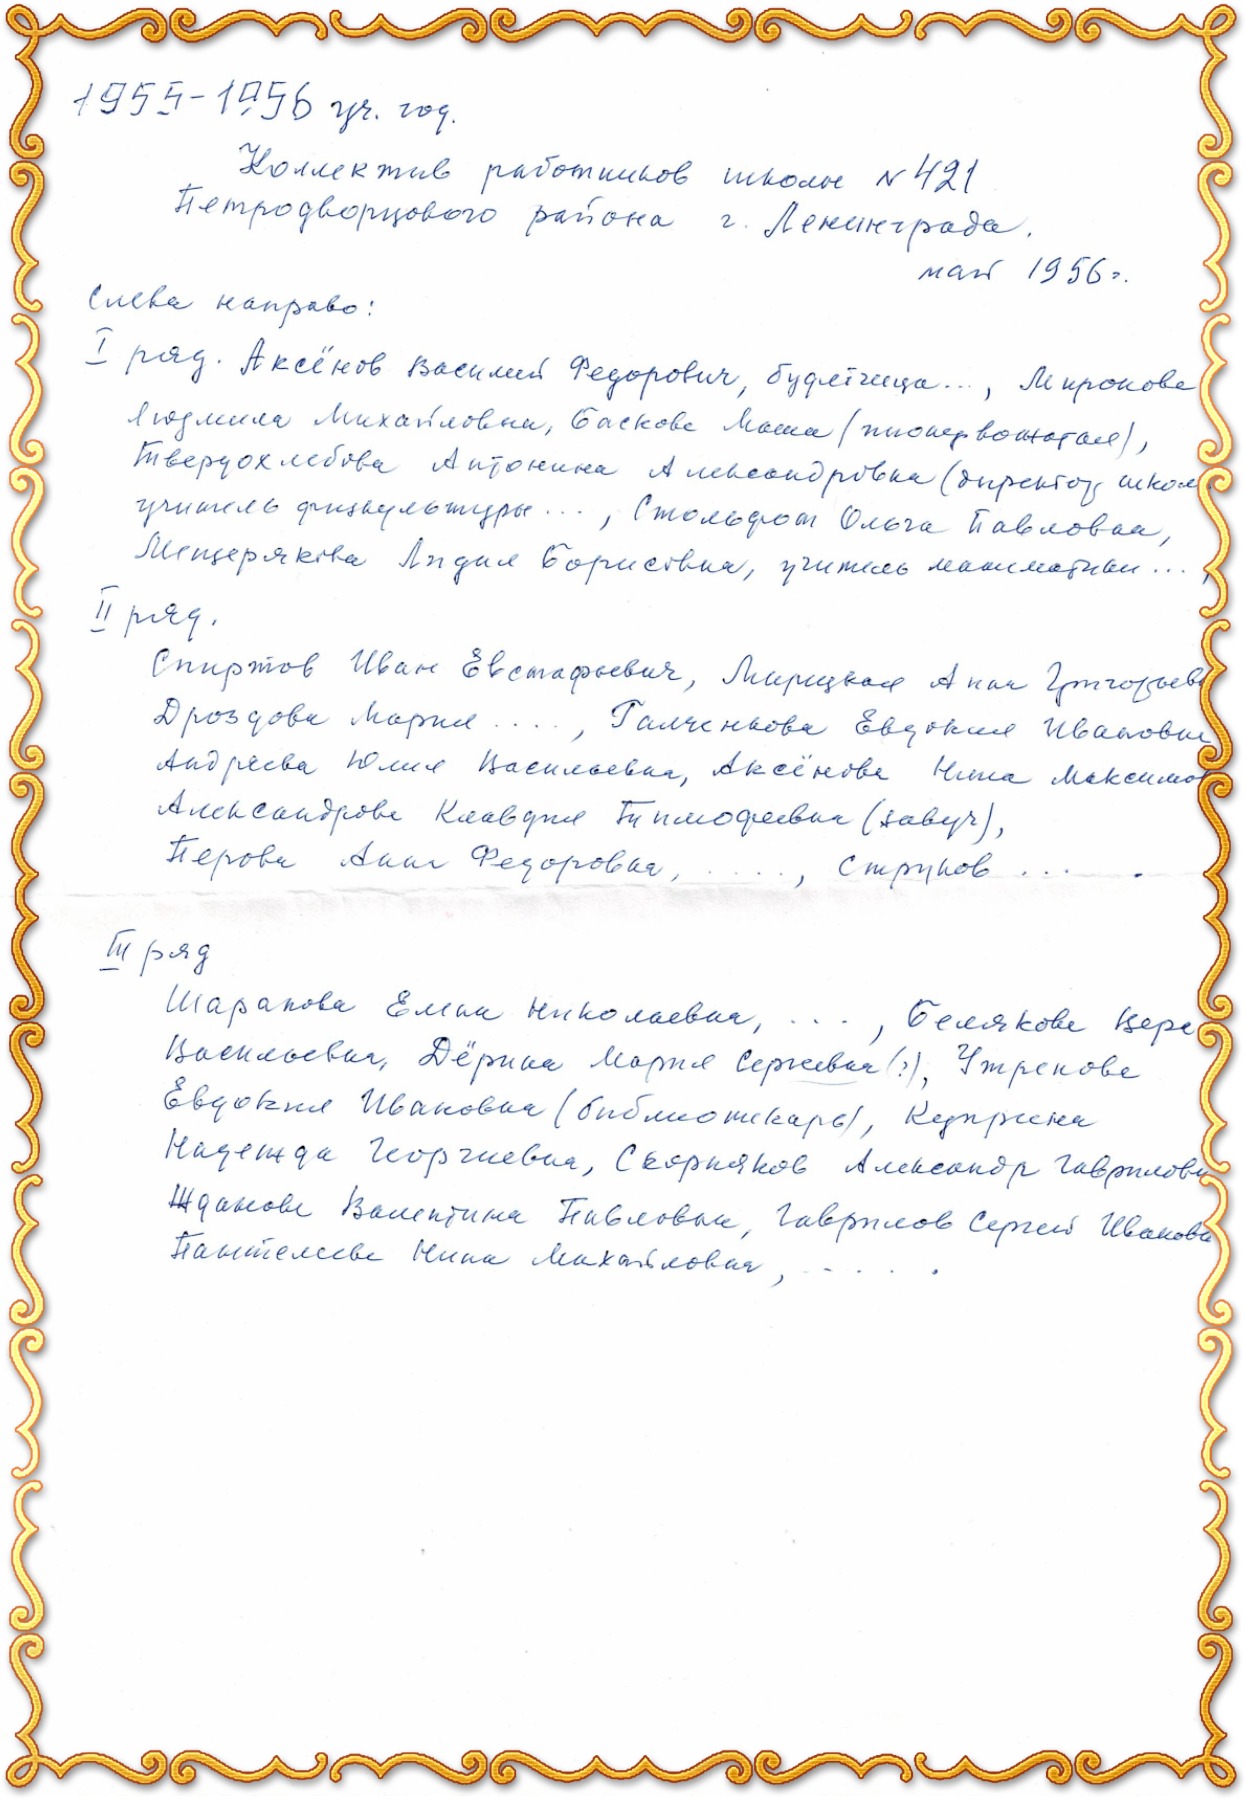 1955-1956 уч. год.
Коллектив работников школы № 421
Петродворцового района г. Ленинграда.
май 1956 г.
Слева направо:
I ряд. Аксёнов Василий Федорович, буфетчица ..., Миронова
Людмила Михайловна, Баскова Маша (пионервожатая),
Твердохлебова Антонина Александровна (директор школ
учитель физкультуры ..., Стольфот Ольга Павловна,
Мещерякова Лидия Борисовна, учитель математики ...,
II ряд.
Спиртов Иван Евстафьевич, Мирицкая Анна Григорьев
Дроздова Мария ...., Галченкова Евдокия Ивановна
Андреева Юлия Васильевна, Аксёнова Нина Максимов
Александрова Клавдия Тимофеевна (завуч),
Перова Анна Федоровна, ...., Струков ... .
III ряд
Шарапова Елена Николаевна, ..., Белякова Вера
Васильевна, Дёрина Мария Сергеевна (?), Утренова
Евдокия Ивановна (библиотекарь), Куприна
Надежда Георгиевна, Скорняков Александр Гаврилови
Жданова Валентина Павловна, Гаврилов Сергей Иванови
Пантелеева Нина Михайловна, .....